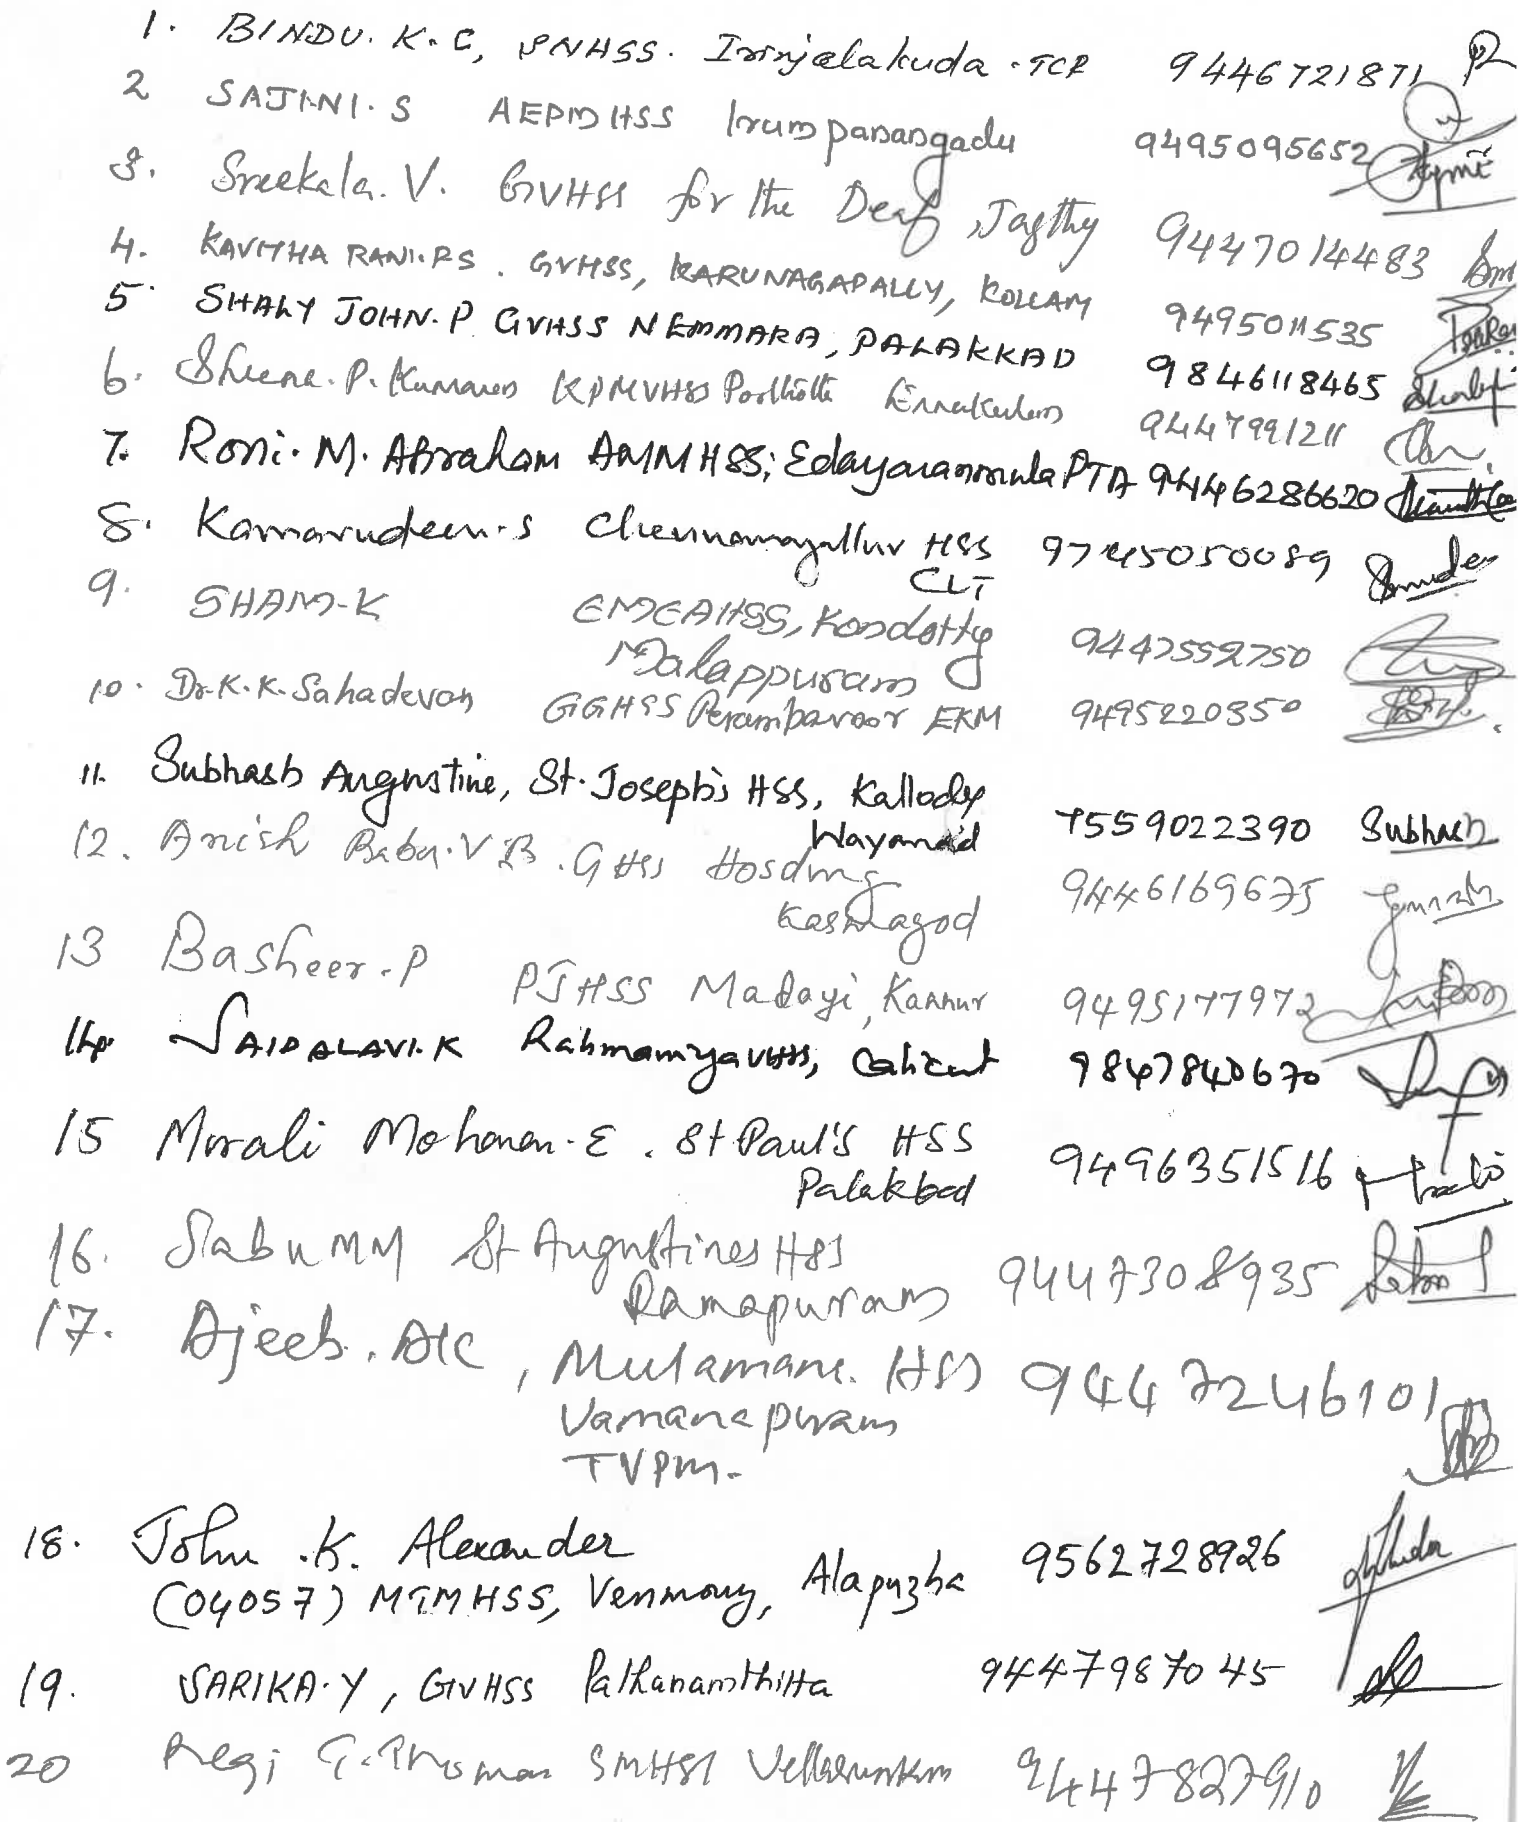 1. BINDU. K. C, SNHSS. Irinjalakuda. TCR 9446721871
2 SAJINI. S AEPMHSS Irumpanangadu 9495095652
3. Sreekala. V. GVHSS for the Deaf, Jagthy 9447014483
4. KAVITHA RANI. P.S. GVHSS, KARUNAGAPALLY, KOLLAM 9495011535
5. SHALY JOHN. P GVHSS NEMMARA, PALAKKAD 9846118465
6. Sheena. P. Kumaran KPMVHSS Poothotta Ernakulam 9447991211
7. Roni. M. Abraham AMMHSS; Edayaranmula PTA 9446286620
8. Kamarudeen. S Chennamangallur HSS 9745050089
CLT
9. SHAM-K EMEAHSS, Kondotty 9447552750
Malappuram
10. Dr. K. K. Sahadevan GGHSS Perumbavoor EKM 9495220350
11. Subhash Augustine, St. Joseph's HSS, Kallody
Wayanad 7559022390 Subhash
12. Anish Babu. V B. GHSS Hosdurg 9446169675
Kasaragod
13 Basheer. P PJHSS Madayi, Kannur 9495177972
14. SAIDALAVI. K Rahmaniya VHSS, Calicut 9847840670
15 Murali Mohanan. E. St Paul's HSS 9496351516 Murali
Palakkad
16. Sabu MM St Augustines HSS 9447308935
Ramapuram
17. Ajeeb. AK, Mulamana. HSS 9447246101
Vamanapuram
TVPM.
18. John. K. Alexander 9562728926
(04057) MTMHSS, Venmony, Alapuzha
19. SARIKA. Y, GVHSS Pathanamthitta 9447987045
20 Regi G. Thomas SMHSS 9447827910